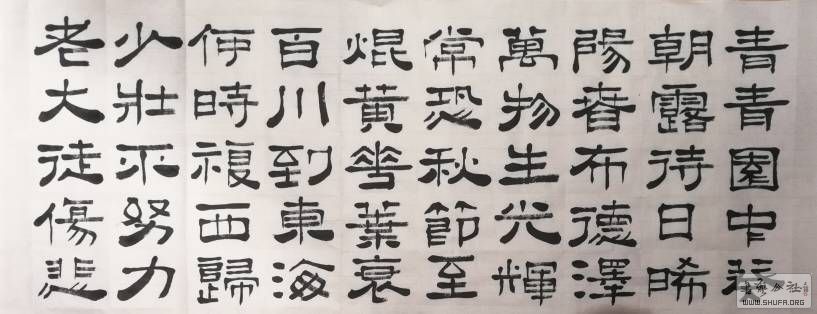 青青園中葵
朝露待日晞
陽春布德澤
萬物生光輝
常恐秋節至
焜黃華葉衰
百川到東海
何時複西歸
少壯不努力
老大徒傷悲
WWW.SHUFA.ORG